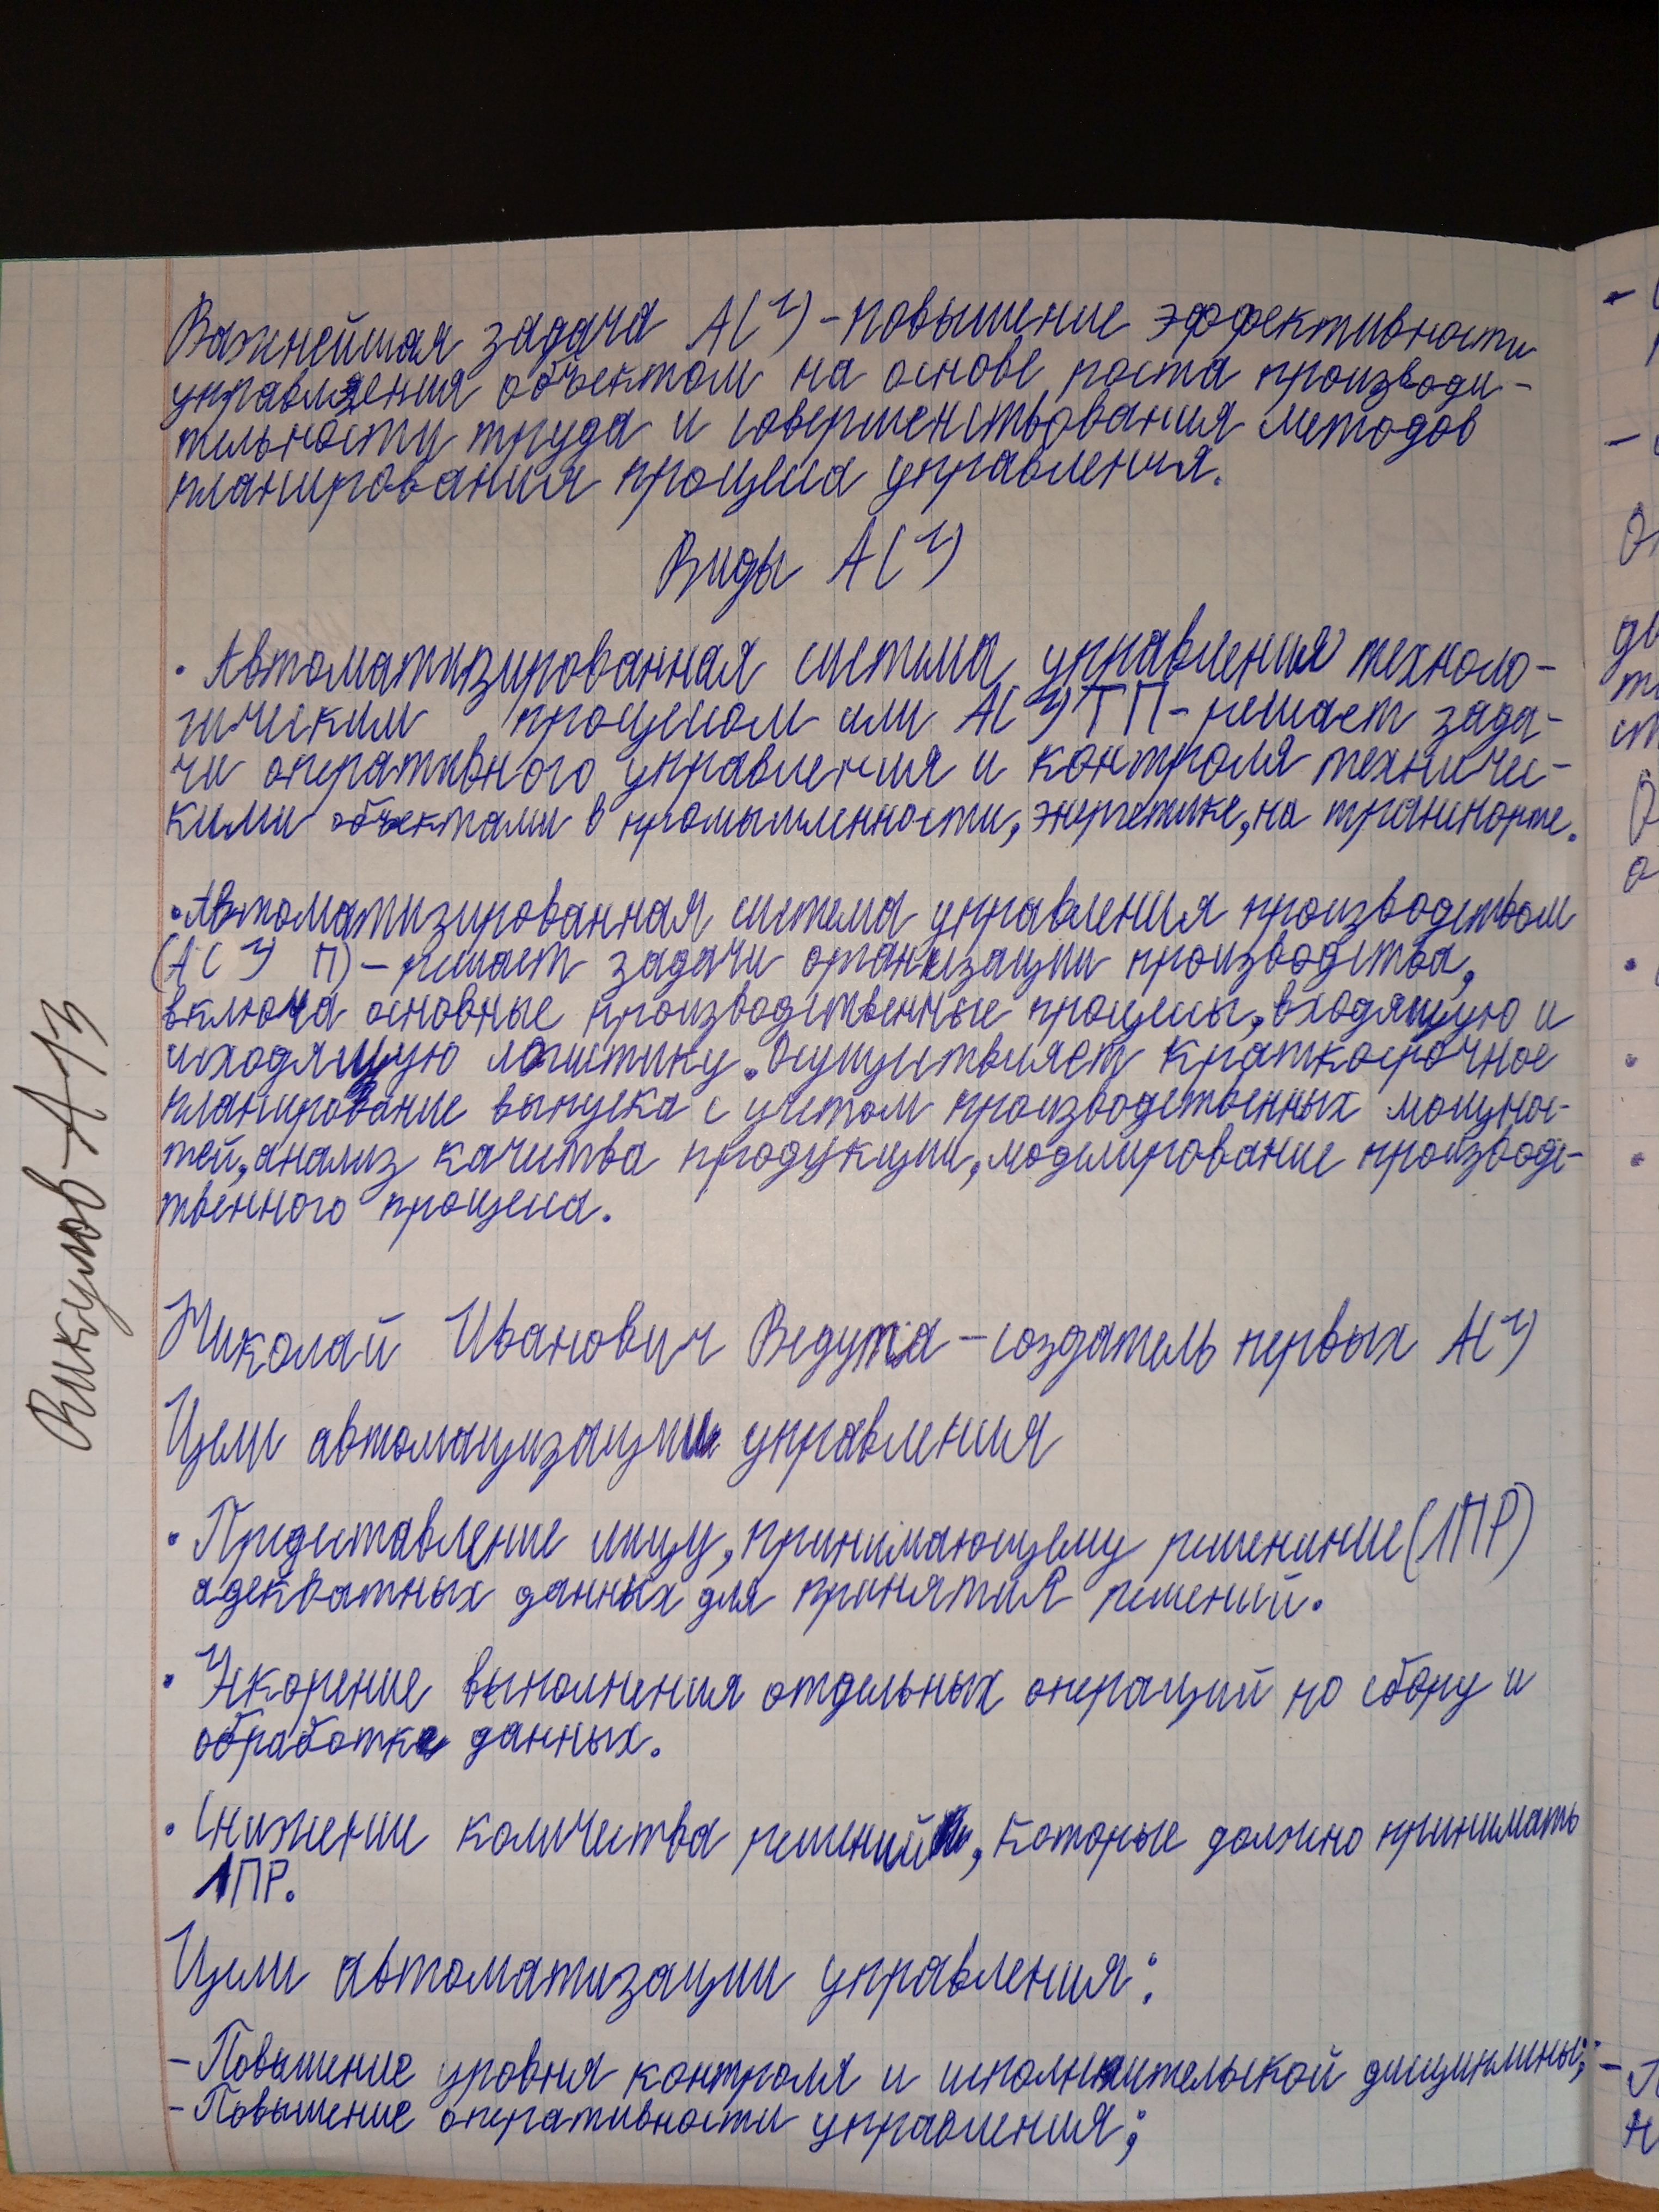 Важнейшая задача АСУ - повышение эффективности
управления объектом на основе роста производи-
тельности труда и совершенствования методов
планирования процесса управления.
Виды АСУ
• Автоматизированная система управления техноло-
гическим процессом или АСУ ТП - решает зада-
чи оперативного управления и контроля техничес-
кими объектами в промышленности, энергетике, на транспорте.
• Автоматизированная система управления производством
(АСУ П) - решает задачи организации производства,
включа основные производственные процессы, входящую и
исходящую логистику. Осуществляет краткосрочное
планирование выпуска с учетом производственных мощнос-
тей, анализ качества продукции, моделирование производс-
твенного процесса.
Николай Иванович Ведута - создатель первых АСУ
Цели автомацизации управления
• Предоставление лицу, принимающему решенние (ЛПР)
адекватных данных для принятия решений.
• Ускорение выполнения отдельных операций по сбору и
обработке данных.
• Снижение количества решений, которые должно принимать
ЛПР.
Цели автоматизации управления:
- Повышение уровня контроля и исполнительской дисциплины;
- Повышение оперативности управления;
Викулов А-13